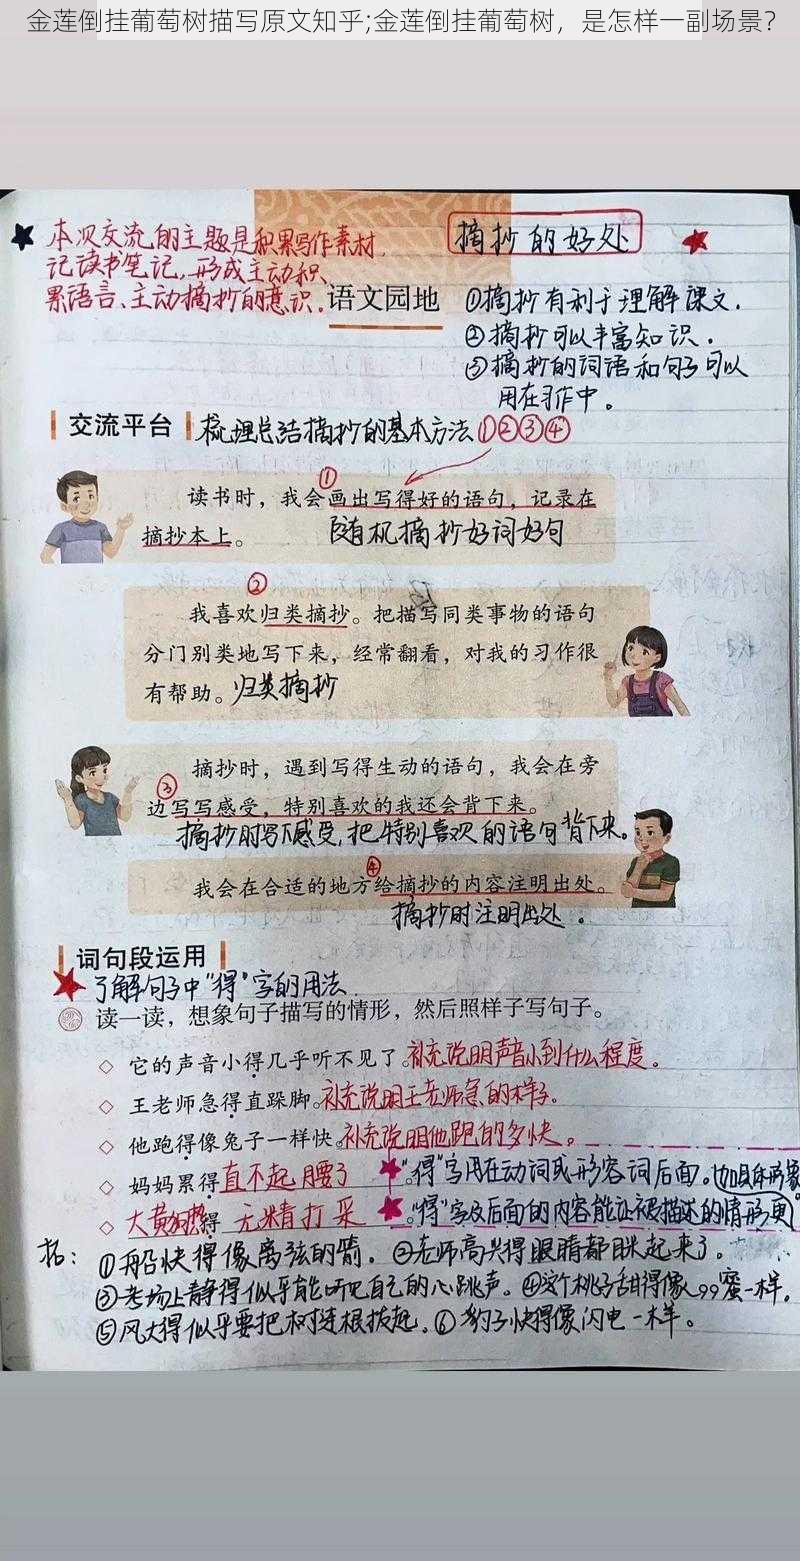 金莲倒挂葡萄树描写原文知乎;金莲倒挂葡萄树，是怎样一副场景？
本次交流的主题是积累写作素材，
记读书笔记，形成主动积
累语言、主动摘抄的意识。
语文园地
摘抄的好处
①摘抄有利于理解课文．
②摘抄可以丰富知识．
③摘抄的词语和句子可以
用在习作中。
交流平台
梳理总结摘抄的基本方法①②③④
①
读书时，我会画出写得好的语句，记录在
摘抄本上。
随机摘抄好词好句
②
我喜欢归类摘抄。把描写同类事物的语句
分门别类地写下来，经常翻看，对我的习作很
有帮助。归类摘抄
摘抄时，遇到写得生动的语句，我会在旁
③
边写写感受，特别喜欢的我还会背下来。
摘抄时写下感受，把特别喜欢的语句背下来。
④
我会在合适的地方给摘抄的内容注明出处。
摘抄时注明出处．
词句段运用
了解句子中“得”字的用法．
读一读，想象句子描写的情形，然后照样子写句子。
它的声音小得几乎听不见了。补充说明声音小到什么程度。
王老师急得直跺脚。补充说明王老师急的样子。
他跑得像兔子一样快。补充说明他跑的多快。
妈妈累得直不起腰了
“得”字用在动词或形容词后面。
大黄狗热得 无精打采
“得”字及后面的内容能让被描述的情形更
如具体形象
拓：①船快得像离弦的箭．②老师高兴得眼睛都眯起来了。
③考场上静得似乎能听见自己的心跳声。④这个桃子甜得像蜜一样．
⑤风大得似乎要把树连根拔起．⑥豹子快得像闪电一样。